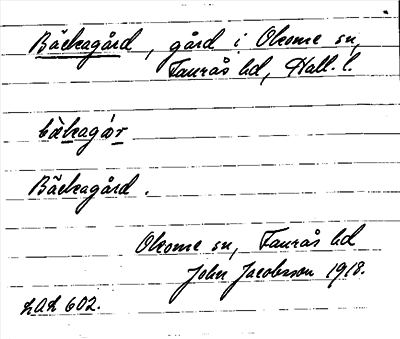 Bäckagård, gård i Okome sn,
Faurås hd, Hall. l.
bäkagár
Bäckagård.
Okome sn, Faurås hd
John Jacobsson 1918.
LAL 602.